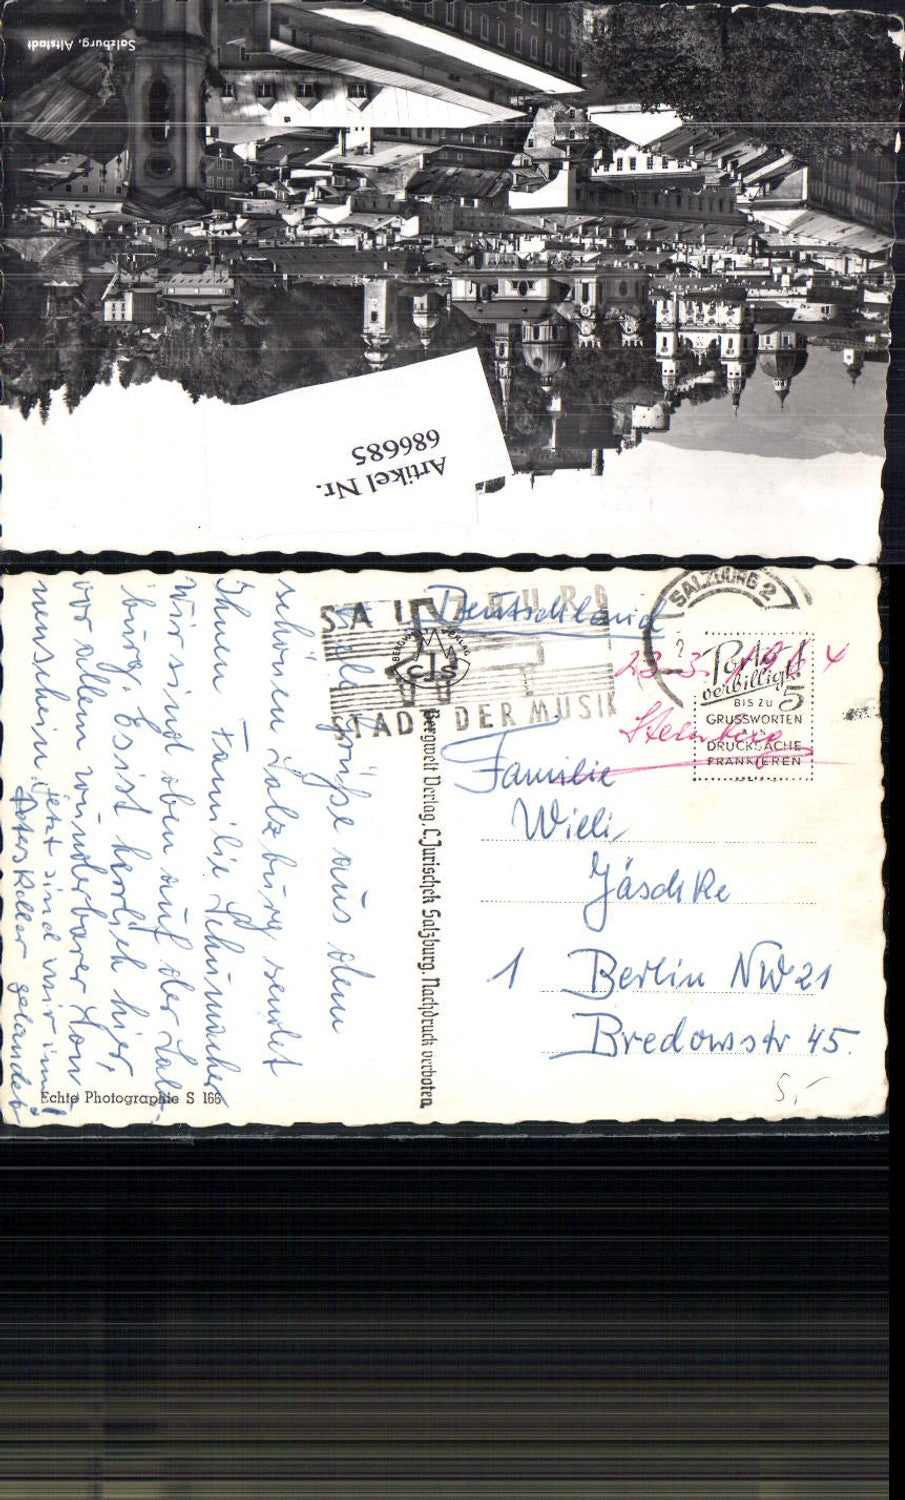 Salzburg, Altstadt
Artikel Nr.
686685
Viele Grüße aus dem
schönen Salzburg sendet
Ihnen Familie Schumacher
Wir sind oben auf der Salz-
burg. Es ist herrlich hier,
vor allem wunderbarer Son-
nenschein. Jetzt sind wir im
Peterskeller gelandet!
Echte Photographie S 166
Bergwelt Verlag, C. Jurischek Salzburg. Nachdruck verboten.
BERGWELT VERLAG
CJS
SALZBURG
STADT DER MUSIK
SALZBURG 2
Deutschland
23.3.1964
Porto
verbilligt!
BIS ZU 5
GRUSSWORTEN
ALS
DRUCKSACHE
FRANKIEREN
Familie
Willi
Jäschke
1 Berlin NW21
Bredowstr 45.
5,-